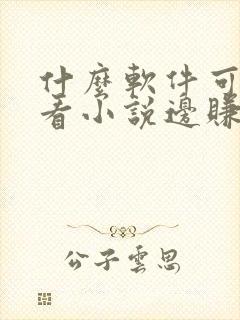 什麼軟件可
看小說邊賺
公子雲思